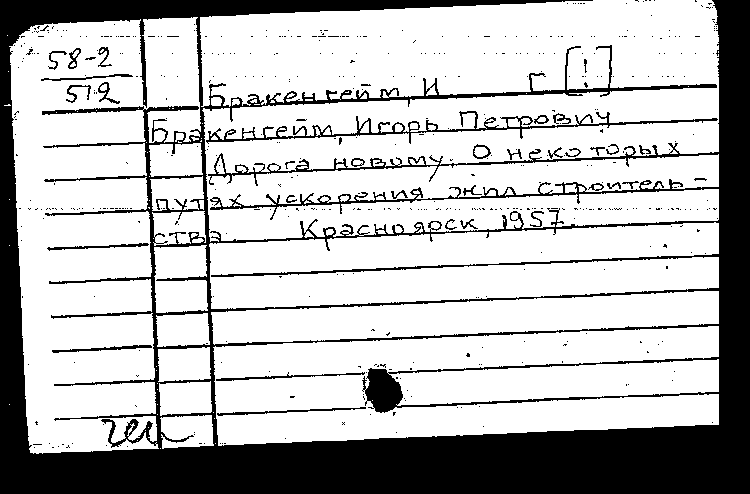 58-2
512
Бракенгейм, И. Г [!]
Бракенгейм, Игорь Петрович
Дорога новому. О некоторых
путях ускорения жил. строитель-
ства. Красноярск, 1957.